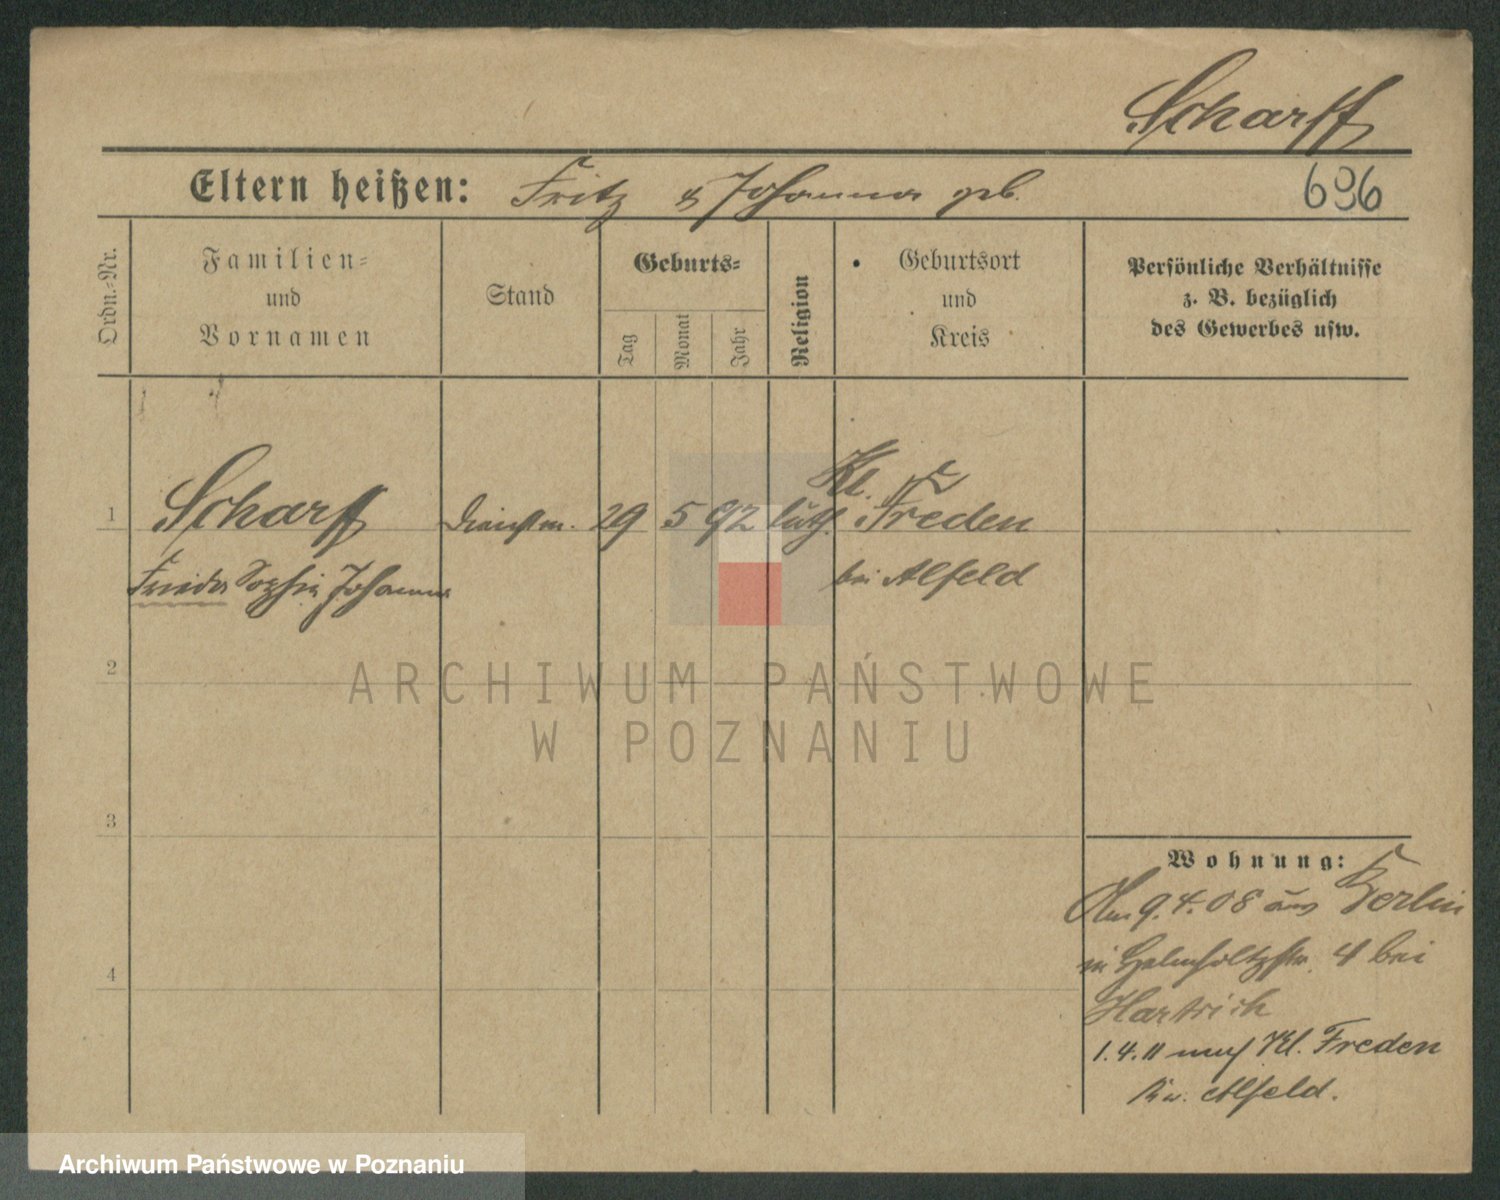 Scharff
Eltern heißen: Fritz u Johanna geb.
696
Ordn.=Nr.
Familien=
und
Vornamen
Stand
Geburts=
Tag
Monat
Jahr
Religion
Geburtsort
und
Kreis
Persönliche Verhältnisse
z. B. bezüglich
des Gewerbes usw.
Kl.
1 Scharff Dienstm. 29 5 92 luth. Freden
Frieda Sophie Johanna bei Alfeld
2
ARCHIWUM PAŃSTWOWE
W POZNANIU
3
Wohnung:
Am 9.4.08 aus Berlin
in Helmholtzstr. 4 bei
4
Hartrich
1.4.11 nach Kl. Freden
Kr. Alfeld.
Archiwum Państwowe w Poznaniu